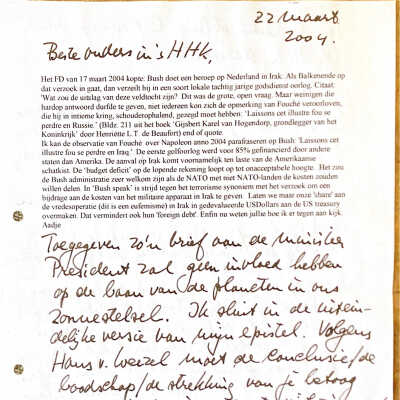 22 maart
2004.
Beste ouders in's HHK,
Het FD van 17 maart 2004 kopte: Bush doet een beroep op Nederland in Irak. Als Balkenende op
dat verzoek in gaat, dan verzeilt hij in een soort lokale tachtig jarige godsdienst oorlog. Citaat:
'Wat zou de uitslag van deze veldtocht zijn? Dit was de grote, open vraag. Maar weinigen die
hardop antwoord durfde te geven, niet iedereen kon zich de opmerking van Fouché veroorloven,
die hij in intieme kring, schouderophalend, gezegd moet hebben: 'Laissons cet illustre fou se
perdre en Russie.' (Bldz. 211 uit het boek 'Gijsbert Karel van Hogendorp, grondlegger van het
Koninkrijk' door Henriëtte L.T. de Beaufort) end of quote.
Ik kan de observatie van Fouché over Napoleon anno 2004 parafraseren op Bush: 'Laissons cet
illustre fou se perdre en Iraq.' De eerste golfoorlog werd voor 85% gefinancierd door andere
staten dan Amerika. De aanval op Irak komt voornamelijk ten laste van de Amerikaanse
schatkist. De 'budget deficit' op de lopende rekening loopt op tot onacceptabele hoogte. Het zou
de Bush administratie zeer welkom zijn als de NATO met niet NATO-landen de kosten zouden
willen delen. In 'Bush speak' is strijd tegen het terrorisme synoniem met het verzoek om een
bijdrage aan de kosten van het militaire apparaat in Irak te geven. Laten we maar onze 'share' aan
de vredesoperatie (dit is een eufemisme) in Irak in gedevalueerde USDollars aan de US treasury
overmaken. Dat vermindert ook hun 'foreign debt'. Enfin nu weten jullie hoe ik er tegen aan kijk.
Aadje
Toegegeven zo'n brief aan de minister
President zal geen invloed hebben
op de baan van de planeten in ons
zonnestelsel. Ik sluit in de uitein-
delijke versie van mijn epistel. Volgens
Hans v. Weezel moet de conclusie/de
boodschap/de strekking van je betoog